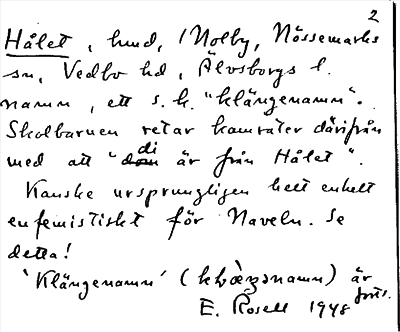 2
Hålet, hmd, i Nolby, Nössemarks
sn, Vedbo hd, Älvsborgs l.
namn, ett s.k. "klängenamn".
Skolbarnen retar kamrater därifrån
med att "di är från Hålet".
Kanske ursprungligen helt enkelt
eufemistiskt för Naveln. Se
detta!
'Klängenamn' (klæŋsnamn) är
forts.
E. Rosell 1948